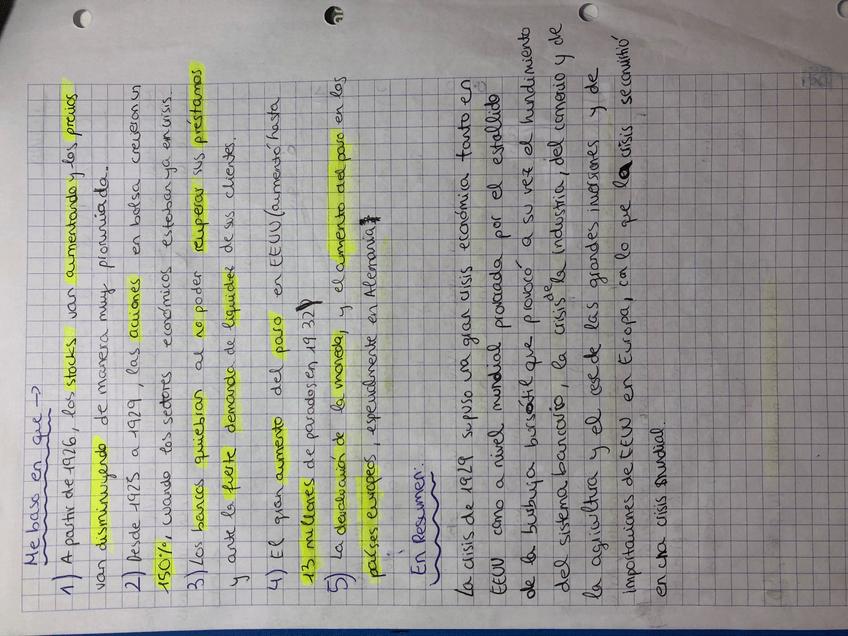 Me baso en que →
1) A partir de 1926, los stocks van aumentando y los precios
van disminuyendo de manera muy pronunciada.
2) Desde 1925 a 1929, las acciones en bolsa crecieron un
150%, cuando los sectores económicos estaban ya en crisis.
3) Los bancos quiebran al no poder recuperar sus préstamos
y ante la fuerte demanda de liquidez de sus clientes.
4) El gran aumento del paro en EEUU (aumentó hasta
13 millones de parados en 1932)
5) La devaluación de la moneda, y el aumento del paro en los
países europeos, especialmente en Alemania.
En Resumen:
La crisis de 1929 supuso una gran crisis económica tanto en
EEUU como a nivel mundial provocada por el estallido
de la burbuja bursátil que provocó a su vez el hundimiento
del sistema bancario, la crisis de la industria, del comercio y de
la agricultura y el cese de las grandes inversiones y de
importaciones de EEUU en Europa, con lo que la crisis se convirtió
en una crisis mundial.